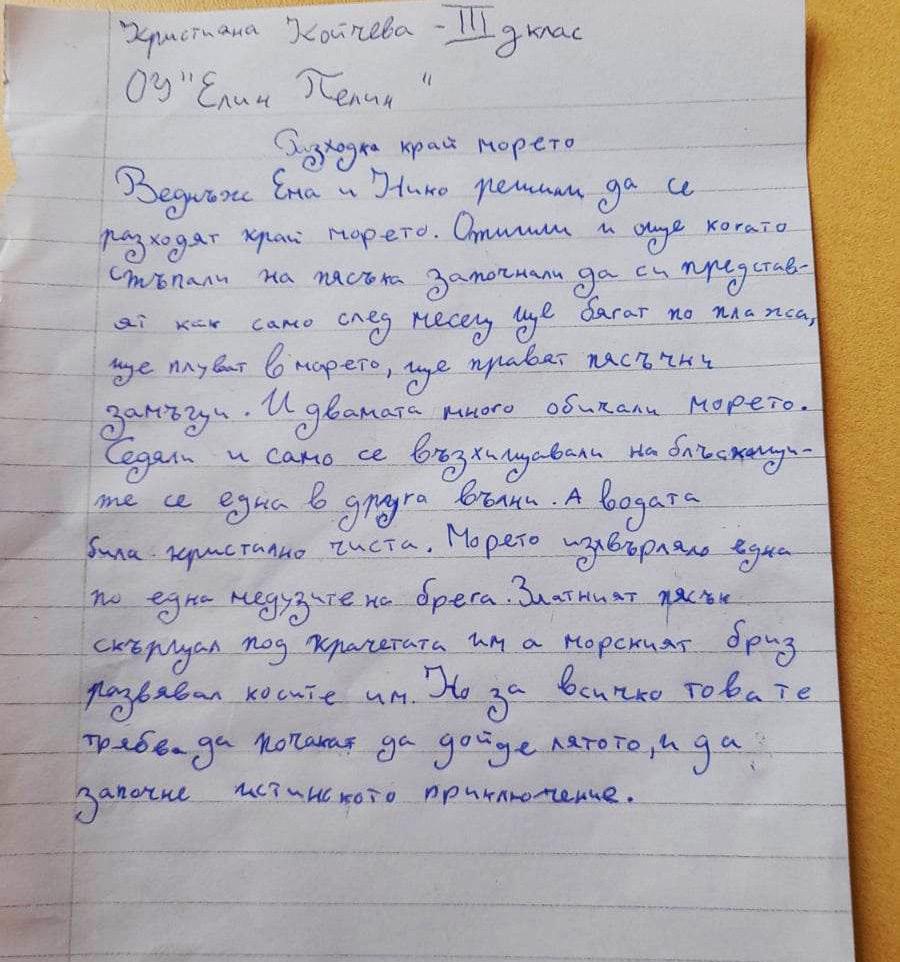 Кристиана Койчева - III д клас
ОУ "Елин Пелин"
Разходка край морето
Веднъж Ема и Нико решили да се
разходят край морето. Отишли и още когато
стъпали на пясъка започнали да си представ-
ят как само след месец ще бягат по плажа,
ще плуват в морето, ще правят пясъчни
замъци. И двамата много обичали морето.
Седяли и само се възхищавали на блъскащи-
те се една в друга вълни. А водата
била кристално чиста. Морето изхвърляло една
по една медузите на брега. Златният пясък
скърцал под крачетата им а морският бриз
развявал косите им. Но за всичко това те
трябва да почакат да дойде лятото, и да
започне истинското приключение.